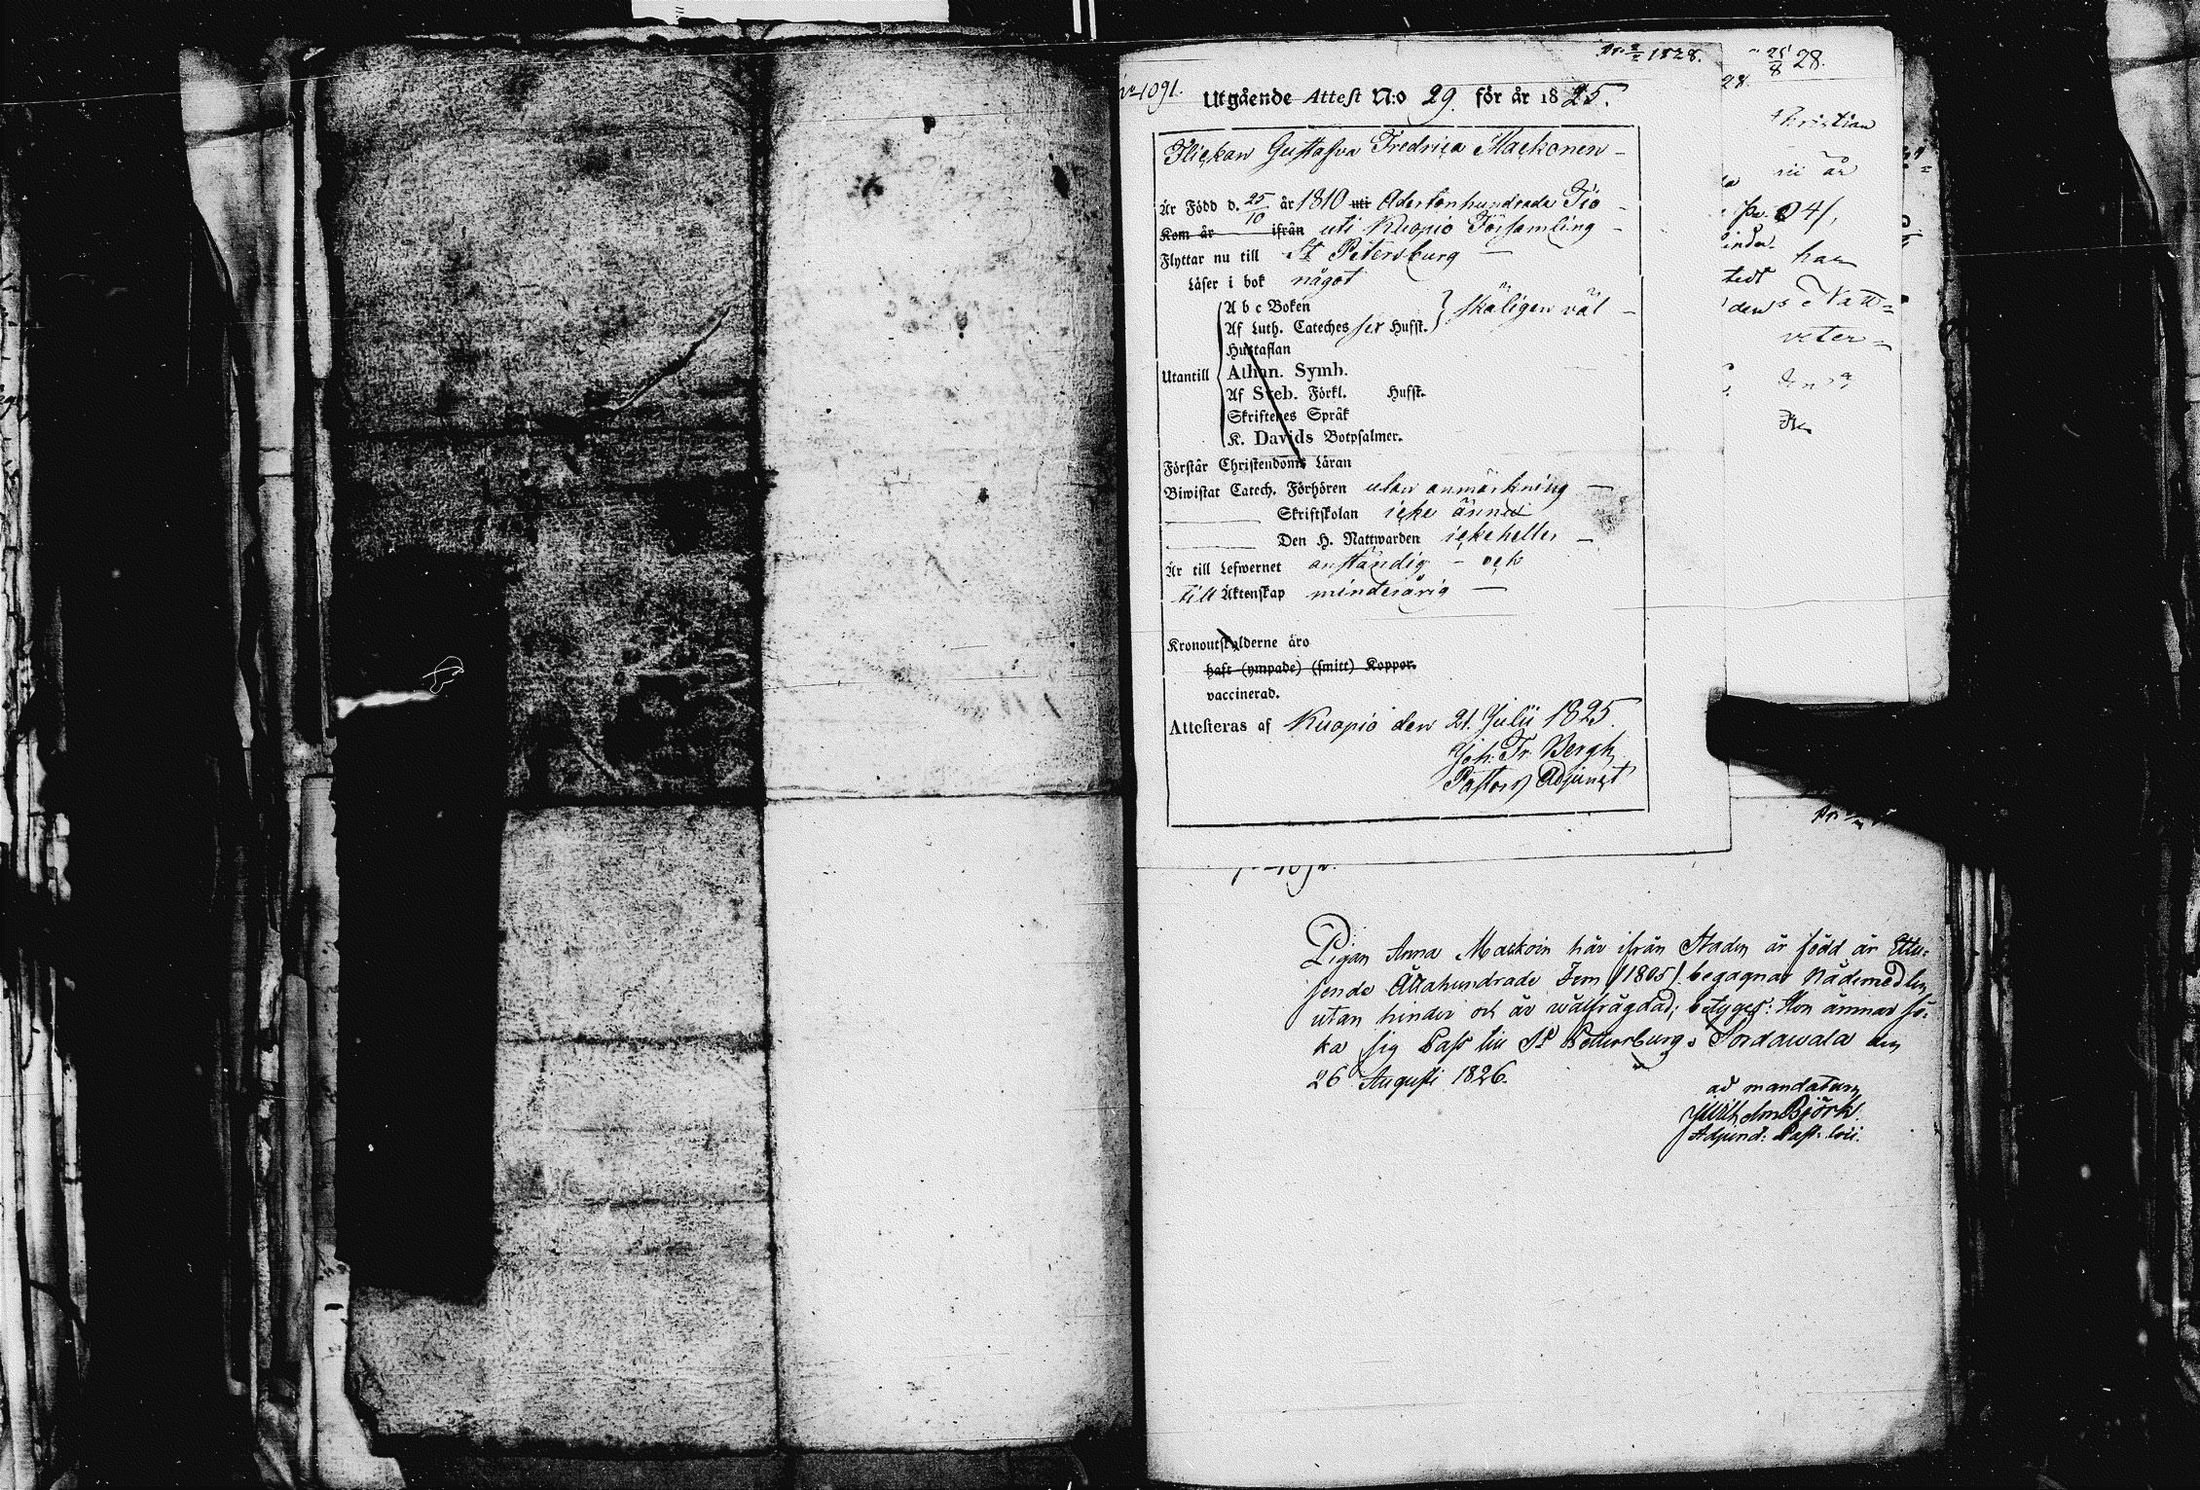 No 1091.
Utgående Attest N:o 29. för år 1825.
Flickan Gustafva Fredrica Mackonen –
Är Född d. 25/10 år 1810 uti Adertonhundrade Tio –
Kom år ifrån uti Kuopio Församling –
Flyttar nu till St Petersburg –
Läser i bok något
A b c Boken
Af Luth. Cateches sex Hufst. } skäligen väl –
Hustaflan
Utantill Athan. Symb.
Af Sveb. Förkl. Hufst.
Skriftenes Språk
K. Davids Botpsalmer.
Förstår Christendoms Läran
Biwistat Catech. Förhören utan anmärkning –
Skriftskolan icke ännu
Den H. Nattwarden icke heller –
Är till Lefwernet anständig – och
till Äktenskap minderårig –
Kronoutskylderne äro
haft (ympade) (smitt) Koppor.
vaccinerad.
Attesteras af Kuopio den 21. Julii 1825.
Joh. Fr. Bergh
Pastors Adjunct
28.
28.
Christian
år
041,
han
tedt
dens Natt=
veter=
Pigan Anna Mackoin här ifrån Staden är född år Ettu-
sende Åttahundrade Fem /1805/. begagnar Nådemedlen
utan hinder och är wälfrägdad; betyges: Hon ämnar sö-
ka sig Pass till St Pettersburg. Sordawala den
26 Augusti 1826.
ad mandatum
Wilhelm Björk.
Adjunct: Past: loci.